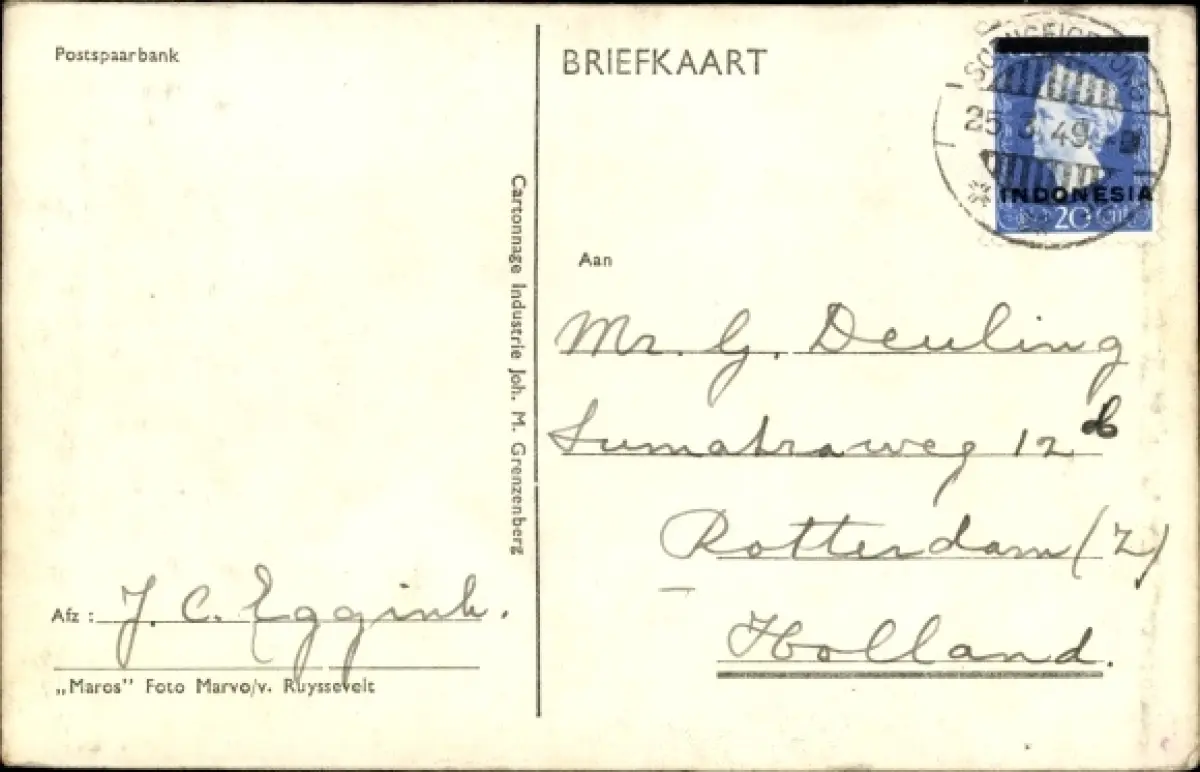 Postspaarbank
BRIEFKAART
25.3.49
INDONESIA
20
Aan
Mr. G. Deuling
Sumatraweg 12 b
Rotterdam (Z)
Holland.
Cartonnage Industrie Joh. M. Grenzenberg
Afz: J. C. Eggink.
„Maros” Foto Marvo/v. Ruyssevelt